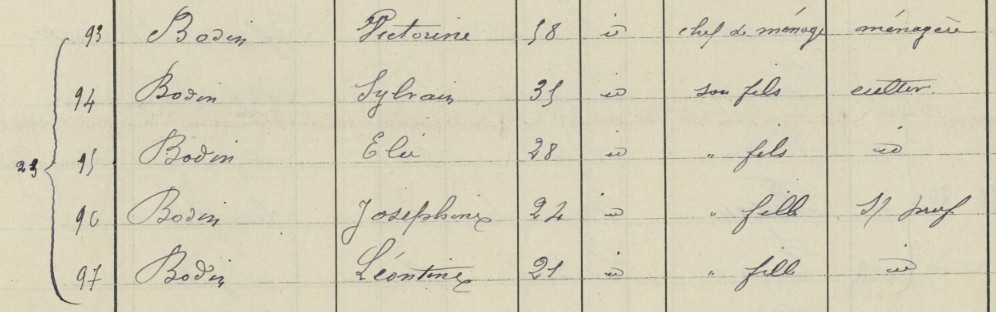 93 Bodin Victorine 58 id chef de ménage ménagère
94 Bodin Sylvain 35 id son fils cultiv.
23 95 Bodin Elie 28 id " fils id
96 Bodin Josephine 24 id " fille S/ prof
97 Bodin Léontine 21 id " fille id